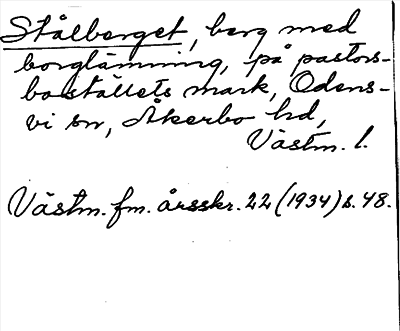 Stålberget, berg med
borglämning, på pastors-
boställets mark, Odens-
vi sn, Åkerbo hd,
Västm. l.
Västm. fm. årsskr. 22 (1934) s. 48.